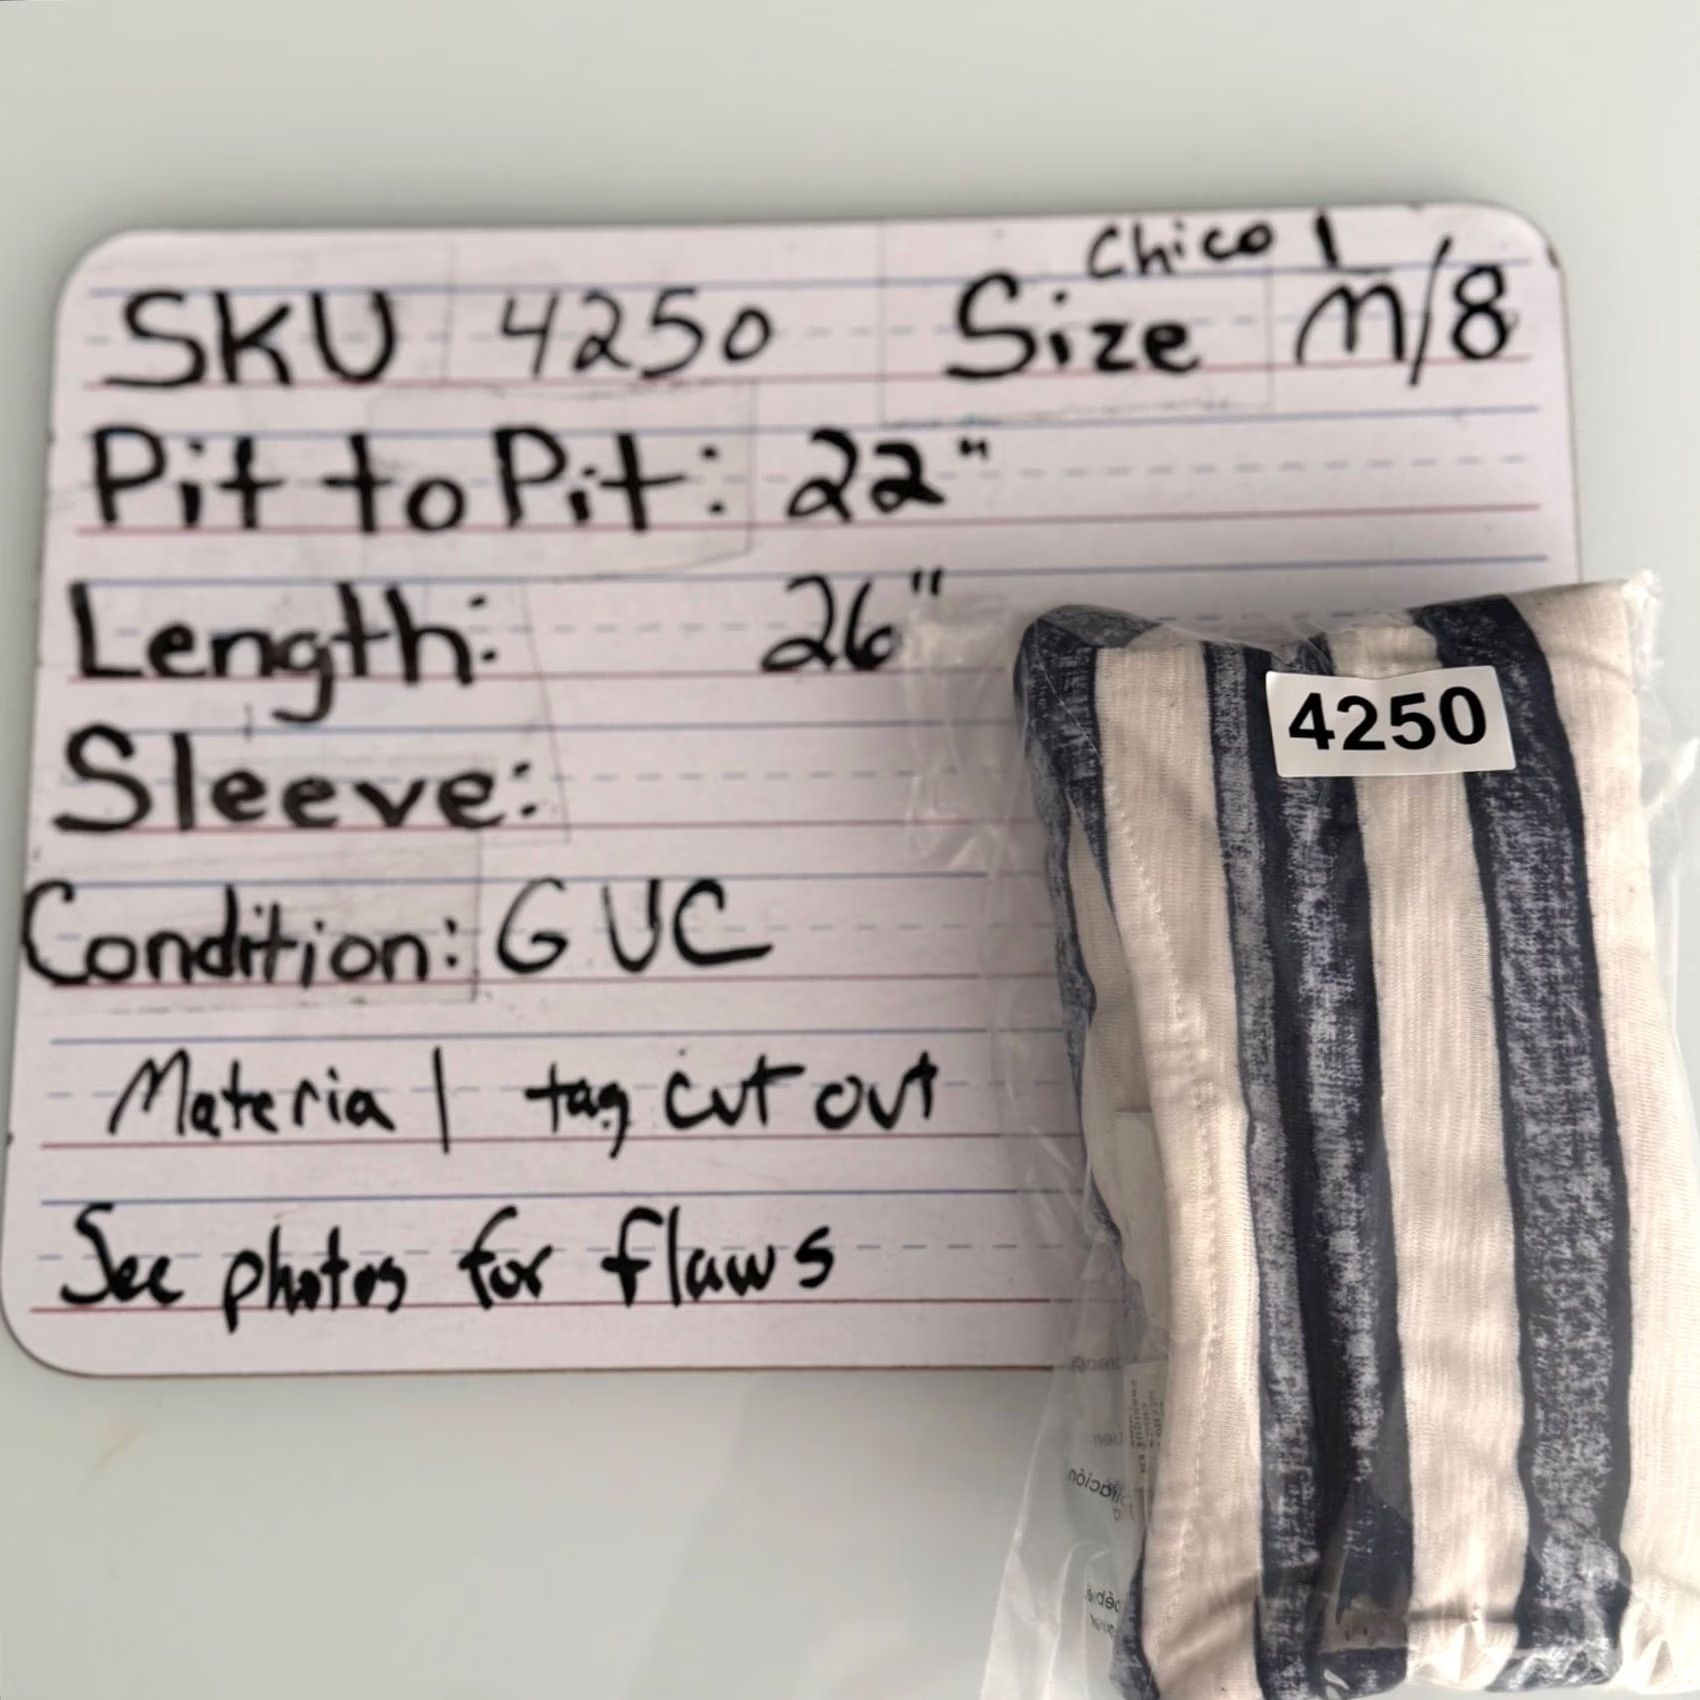 Chico 1
SKU 4250 Size M/8
Pit to Pit: 22"
Length: 26"
4250
Sleeve:
Condition: GUC
Material tag cut out
See photos for flaws